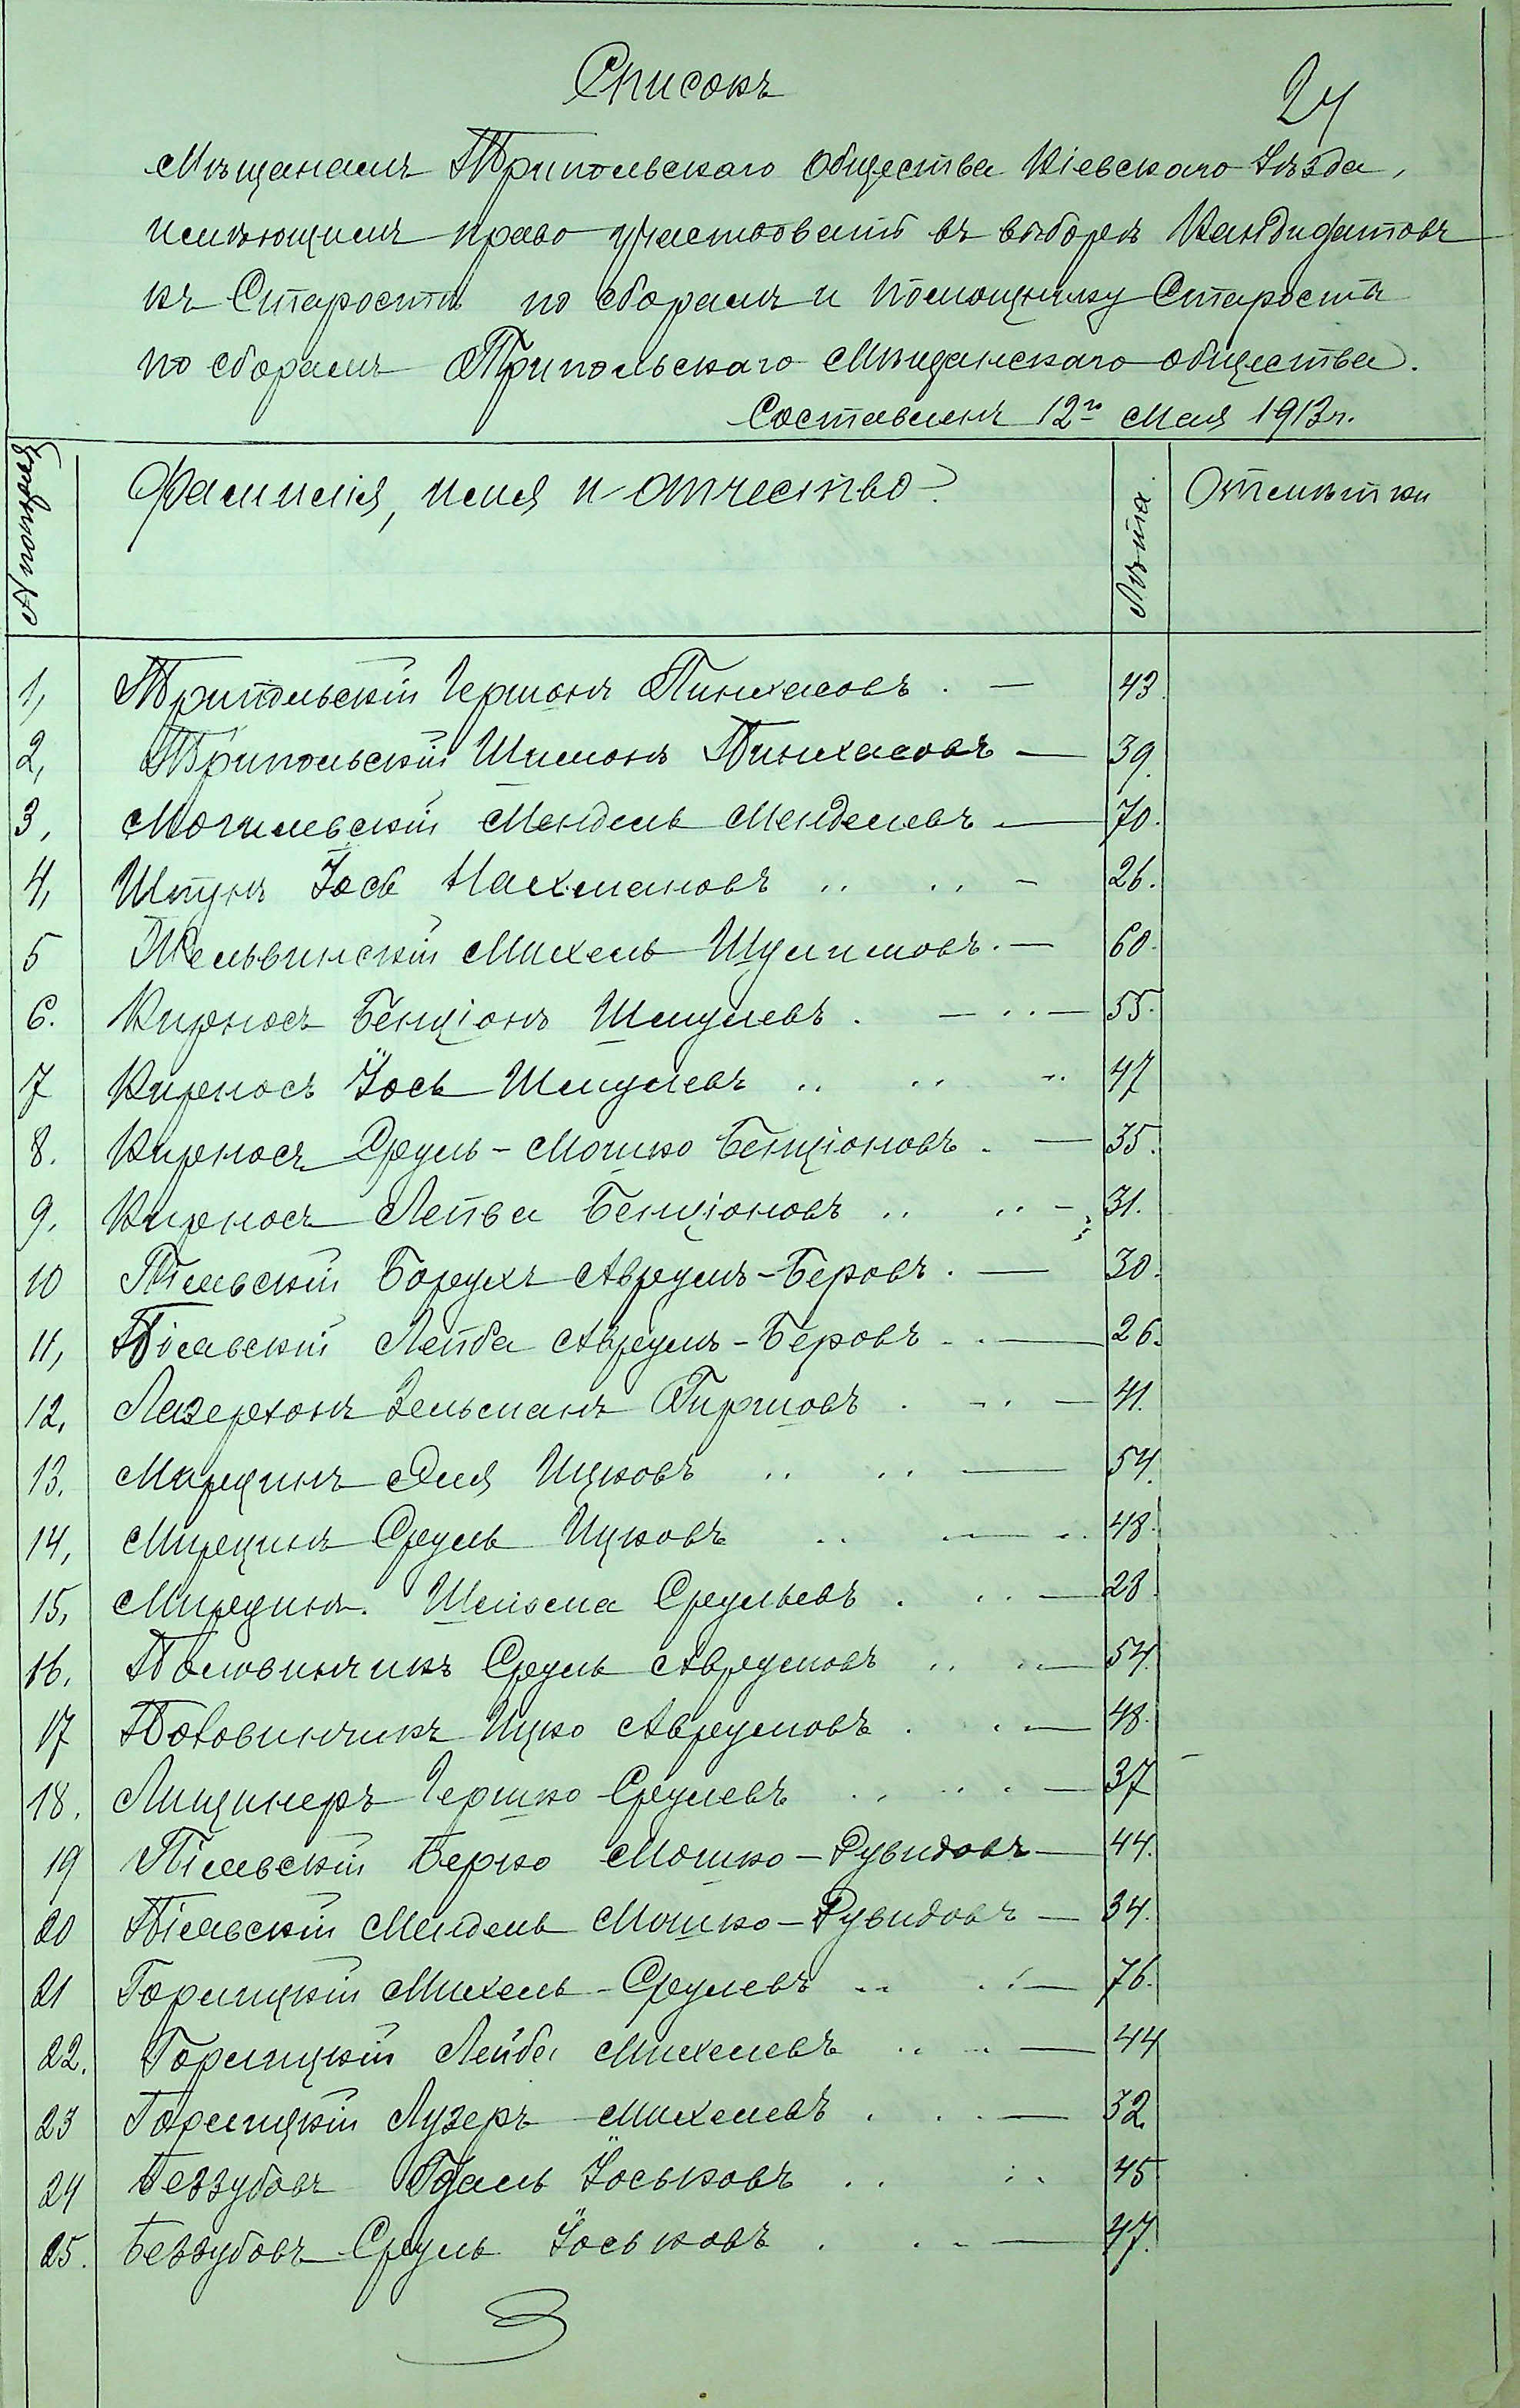 Списокъ
24
Мѣщанамъ Трипольскаго Общества Кіевскаго Уѣзда,
имѣющимъ право участвовать въ выборѣ Кандидатовъ
къ Старостѣ по сборамъ и помощнику Старосты
по сборамъ Трипольскаго Мѣщанскаго общества.
Составленъ 12го Мая 1913 г.
№ по порядку
Фамилія, имя и отчество?
Лѣта.
Отмѣтки
1, Трипольскій Гершонъ Пинхасовъ . — 43.
2, Трипольскій Шимонъ Пинхасовъ — 39.
3, Могилевскій Мендель Менделевъ — 70.
4, Штунъ Іось Нахмановъ .. .. — 26.
5 Тельвинскій Михель Шулимовъ. — 60.
6. Кирносъ Бенціонъ Шмулевъ . — .. — 55.
7 Кирносъ Іось Шмулевъ .. .. .. 47
8. Кирносъ Сруль-Мошко Бенціоновъ . — 35.
9. Кирносъ Лейба Бенціоновъ .. .. — 31.
10 Пільскій Борухъ Аврумъ-Беровъ . — 30.
11, Пільскій Лейба Аврумъ-Беровъ . . — 26.
12. Лазерхонъ Зельманъ Гиршовъ . .. — 41.
13. Мирецинъ Эля Ицковъ .. .. — 54.
14, Мирецинъ Сруль Ицковъ .. — .. 48.
15, Мирецинъ. Шліома Срульевъ . .. — 28.
16. Половинчикъ Сруль Аврумовъ .. .. — 54.
17 Половинчикъ Ицко Аврумовъ . . — 48.
18. Лищинеръ Гершко Срулевъ .. .. — 37
19 Пільскій Берко Мошко-Рувидовъ — 44.
20 Пільскій Мендель Мошко-Рувидовъ — 34.
21 Горлицкій Михель Срулевъ .. .. — 76.
22. Горлицкій Лейба Михелевъ .. .. — 44
23 Горлицкій Лузеръ Михелевъ . . . — 32.
24 Беззубовъ Гдаль Іоськовъ .. .. 45
25. Беззубовъ Сруль Іоськовъ . . . — 47.